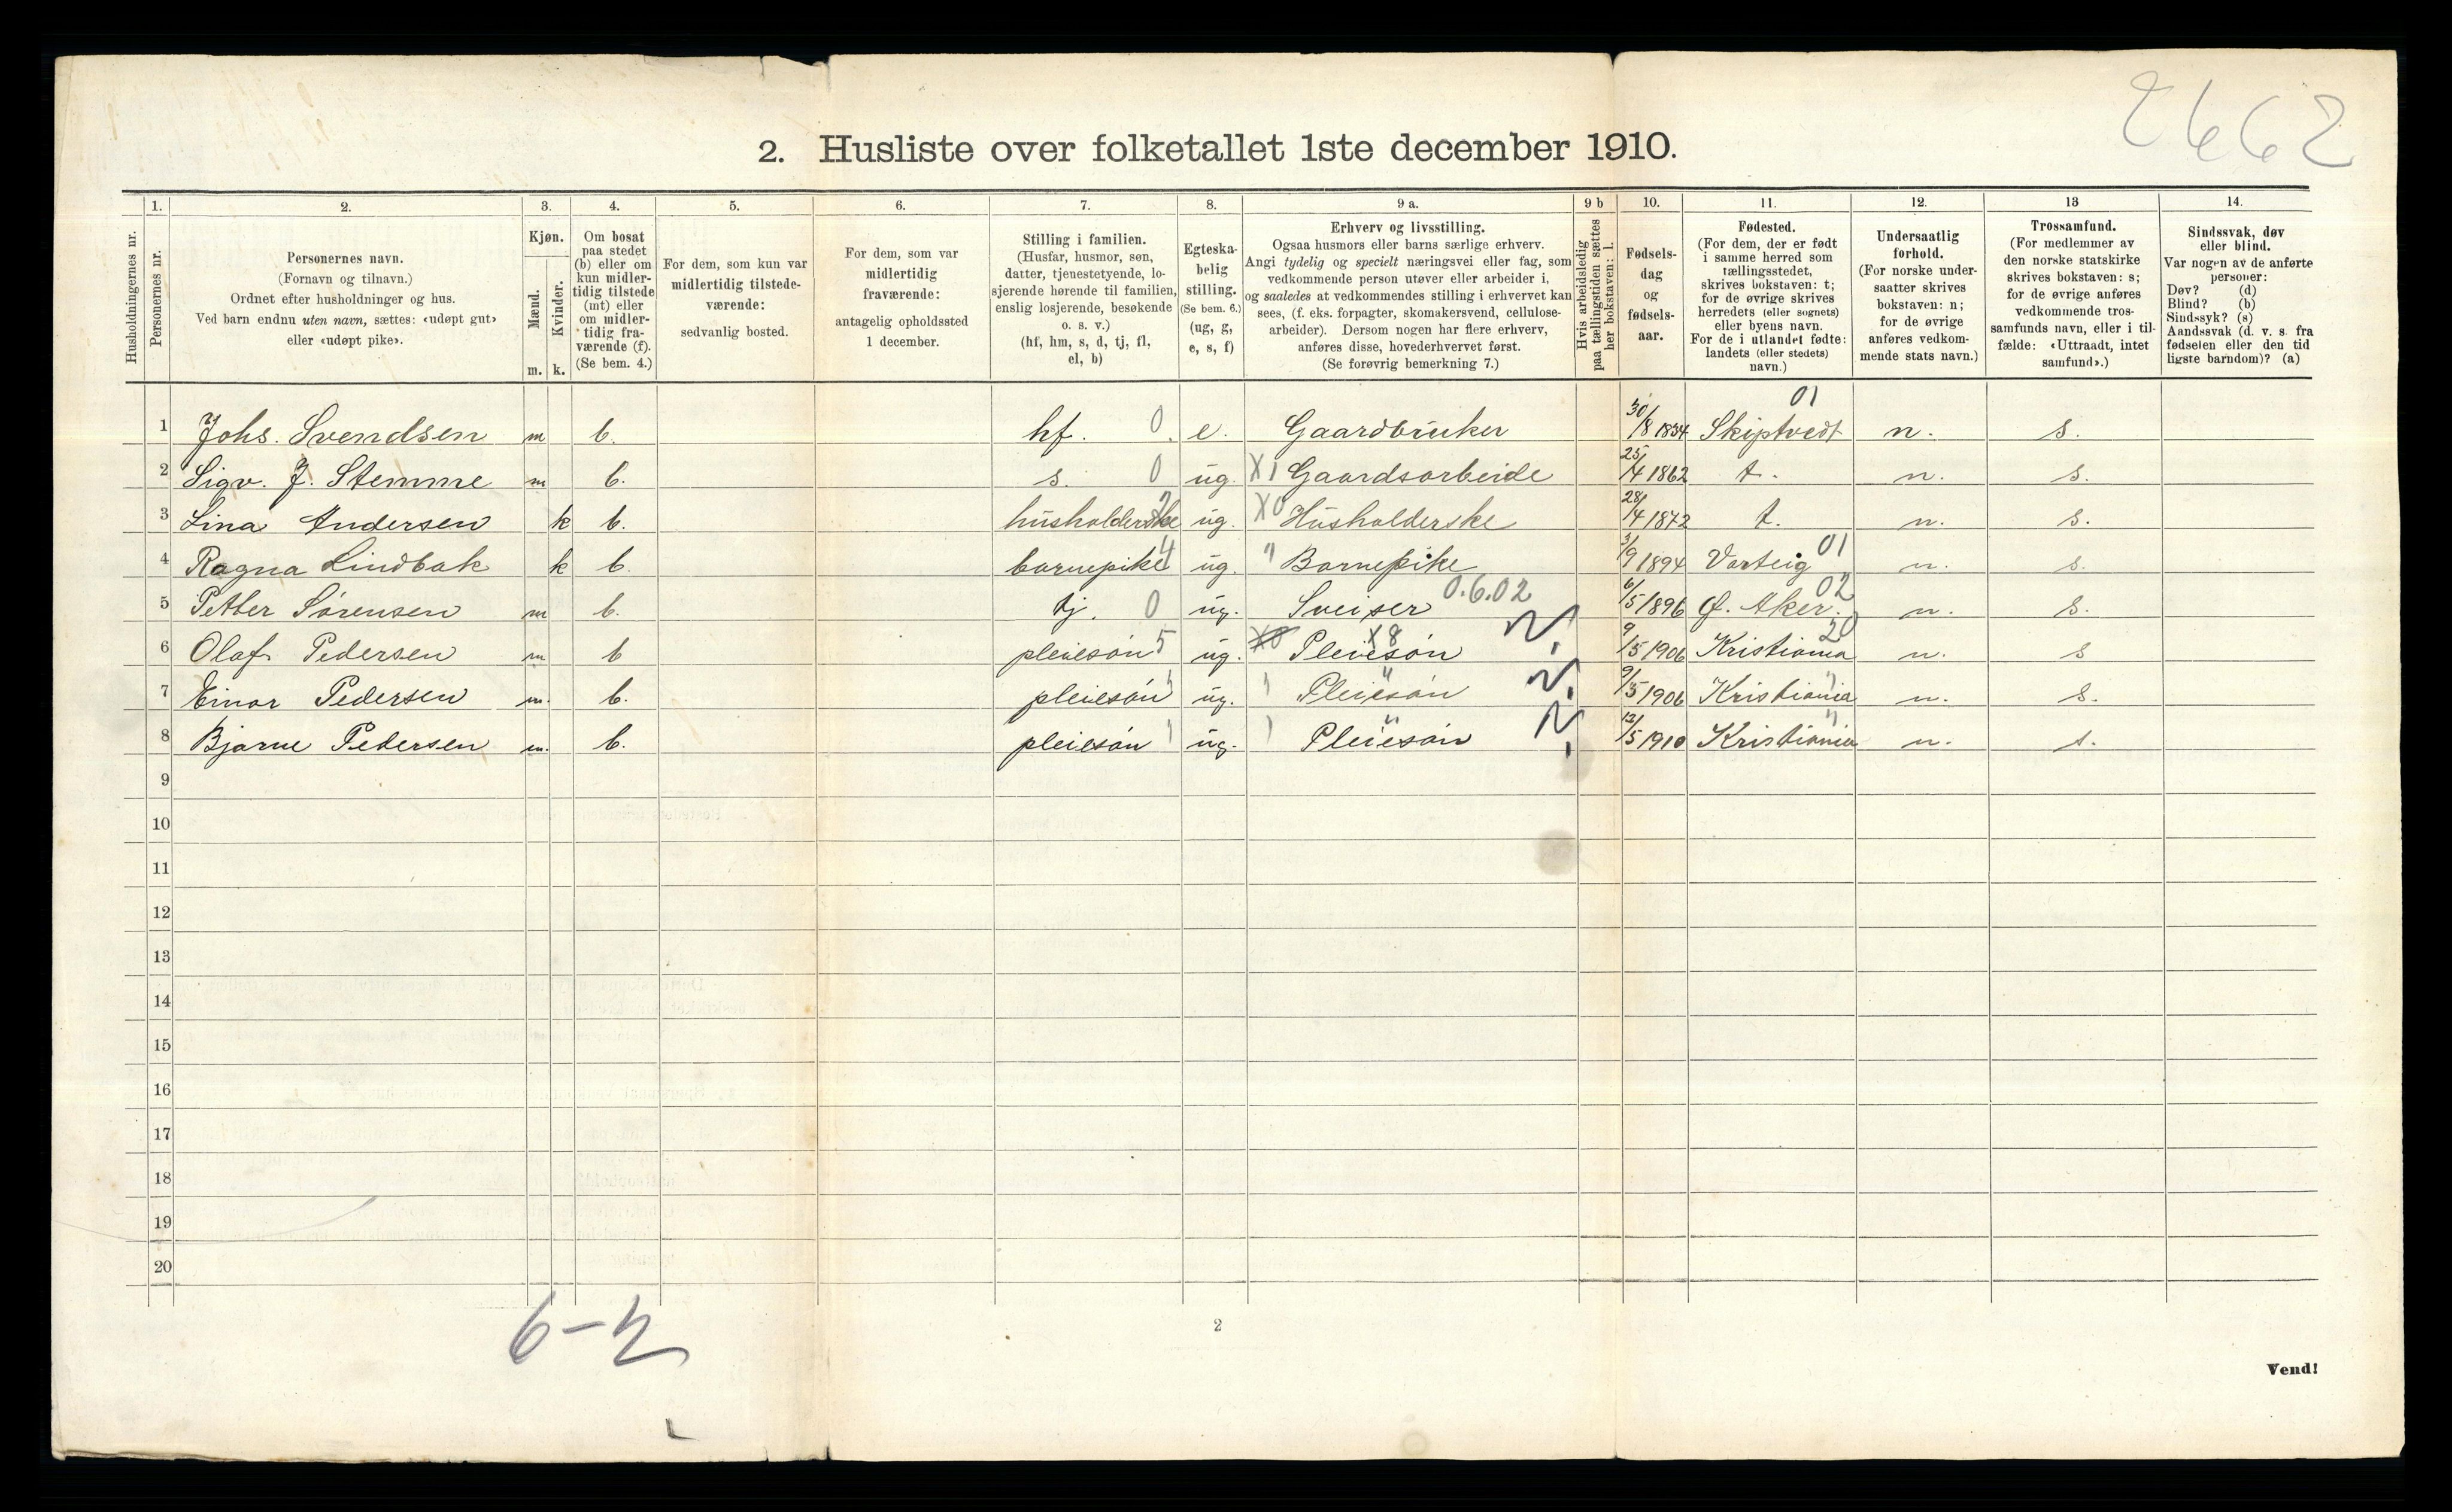 2662
2. Husliste over folketallet 1ste december 1910.
Husholdningernes nr.
1.
Personernes nr.
2.
Personernes navn.
(Fornavn og tilnavn.)
Ordnet efter husholdninger og hus.
Ved barn endnu uten navn, sættes: «udøpt gut»
eller «udøpt pike».
3.
Kjøn.
Mænd.
Kvinder.
m. k.
4.
Om bosat
paa stedet
(b) eller om
kun midler-
tidig tilstede
(mt) eller
om midler-
tidig fra-
værende (f).
(Se bem. 4.)
5.
For dem, som kun var
midlertidig tilstede-
værende:
sedvanlig bosted.
6.
For dem, som var
midlertidig
fraværende:
antagelig opholdssted
1 december.
7.
Stilling i familien.
(Husfar, husmor, søn,
datter, tjenestetyende, lo-
sjerende hørende til familien,
enslig losjerende, besøkende
o. s. v.)
(hf, hm, s, d, tj, fl,
el, b)
8.
Egteska-
belig
stilling.
(Se bem. 6.)
(ug, g,
e, s, f)
9 a.
Erhverv og livsstilling.
Ogsaa husmors eller barns særlige erhverv.
Angi tydelig og specielt næringsvei eller fag, som
vedkommende person utøver eller arbeider i,
og saaledes at vedkommendes stilling i erhvervet kan
sees, (f. eks. forpagter, skomakersvend, cellulose-
arbeider). Dersom nogen har flere erhverv,
anføres disse, hovederhvervet først.
(Se forøvrig bemerkning 7.)
9 b
Hvis arbeidsledig
paa tællingstiden sættes
her bokstaven: l.
10.
Fødsels-
dag
og
fødsels-
aar.
11.
Fødested.
(For dem, der er født
i samme herred som
tællingsstedet,
skrives bokstaven: t;
for de øvrige skrives
herredets (eller sognets)
eller byens navn.
For de i utlandet fødte:
landets (eller stedets)
navn.)
12.
Undersaatlig
forhold.
(For norske under-
saatter skrives
bokstaven: n;
for de øvrige
anføres vedkom-
mende stats navn.)
13
Trossamfund.
(For medlemmer av
den norske statskirke
skrives bokstaven: s;
for de øvrige anføres
vedkommende tros-
samfunds navn, eller i til-
fælde: «Uttraadt, intet
samfund».)
14.
Sindssvak, døv
eller blind.
Var nogen av de anførte
personer:
Døv? (d)
Blind? (b)
Sindssyk? (s)
Aandssvak (d. v. s. fra
fødselen eller den tid
ligste barndom)? (a)
01
1 Johs. Svendsen m b. hf. 0 e. Gaardbruker 30/8 1834 Skiptvedt n. s.
2 Sigv. J. Stemme m b. s. 0 ug. X1 Gaardsarbeide 25/4 1862 t. n. s.
3 Lina Andersen k b. husholderske 2 ug. X0 Husholderske 28/4 1872 t. n. s.
4 Ragna Lindbak k b. barnepike 4 ug. " Barnepike 3/9 1894 Varteig 01 n. s.
5 Petter Sørensen m b. tj. 0 ug. Sveiser 0.6.02 6/5 1896 Ø. Aker. 02 n. s.
6 Olaf Pedersen m b pleiesøn 5 ug. X0 Pleiesøn X8 9/5 1906 Kristiania 20 n. s
7 Einar Pedersen m. b. pleiesøn " ug. " Pleiesøn " 9/5 1906 Kristiania " n. s.
8 Bjarne Pedersen m. b. pleiesøn " ug. " Pleiesøn " 13/5 1910 Kristiania " n. s.
9
10
11
12
13
14
15
16
17
18
19
20
6-2
2
Vend!